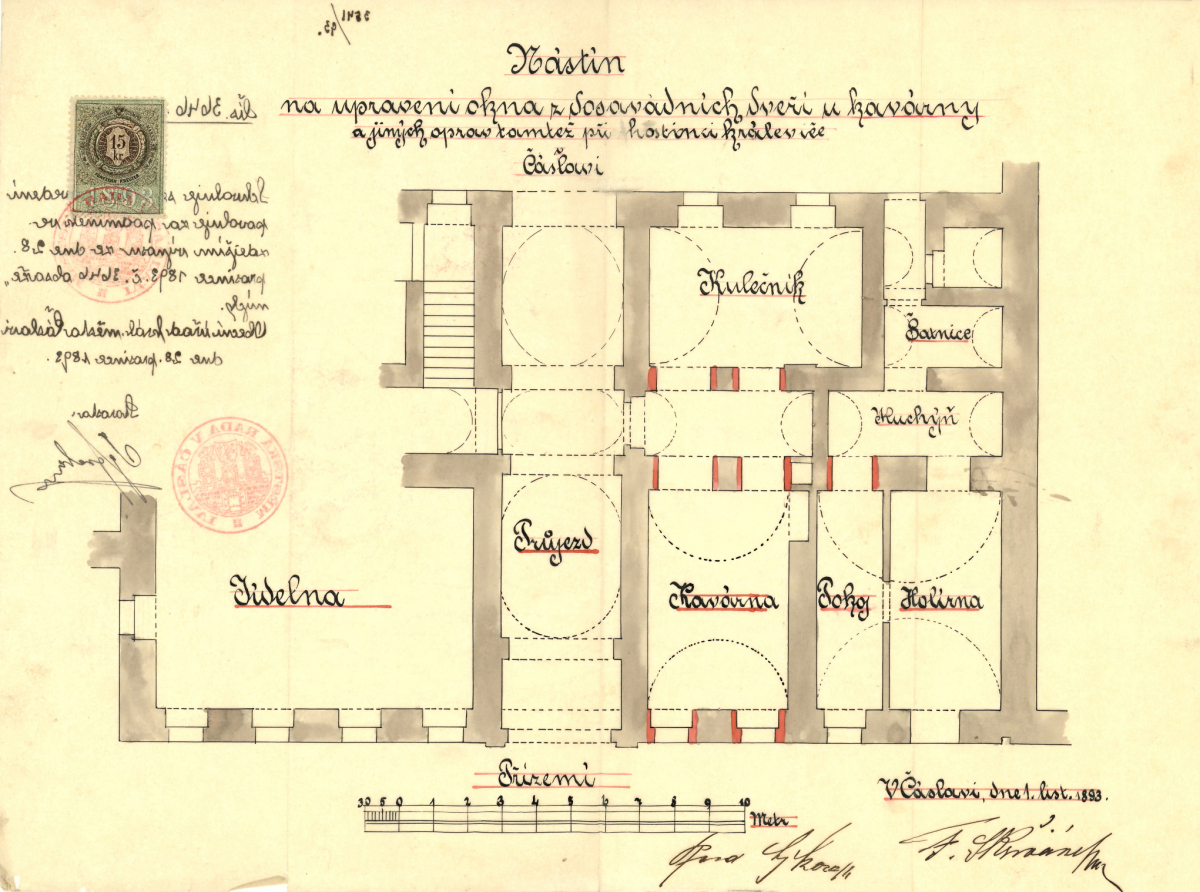 Nástin
na upravení okna z dosavádních dveří u kavárny
a jiných oprav tamtéž při hostinci králeviče
Čáslavi
čís. 3646.
15
kr
povoluje za podmínek ve
zdejším výnosu ze dne 28.
prosince 1893 č. 3646 obsaže-
ných.
Obecní úřad král. města Čáslavi
dne 28. prosince 1893.
Starosta:
Kulečník
Šatnice
Kuchyň
Průjezd
Jídelna
Kavárna
Pokoj
Holírna
Přízemí
10 5 0 1 2 3 4 5 6 7 8 9 10
Metr
V Čáslavi, dne 1. list. 1893.